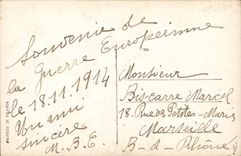 Souvenir de
la Guerre Européenne
le 18.11.1914
Un ami
sincère
M.B.E.
Monsieur
Biscarre Marcel
18. Rue des Petites-Maries
Marseille
B-d-Rhône